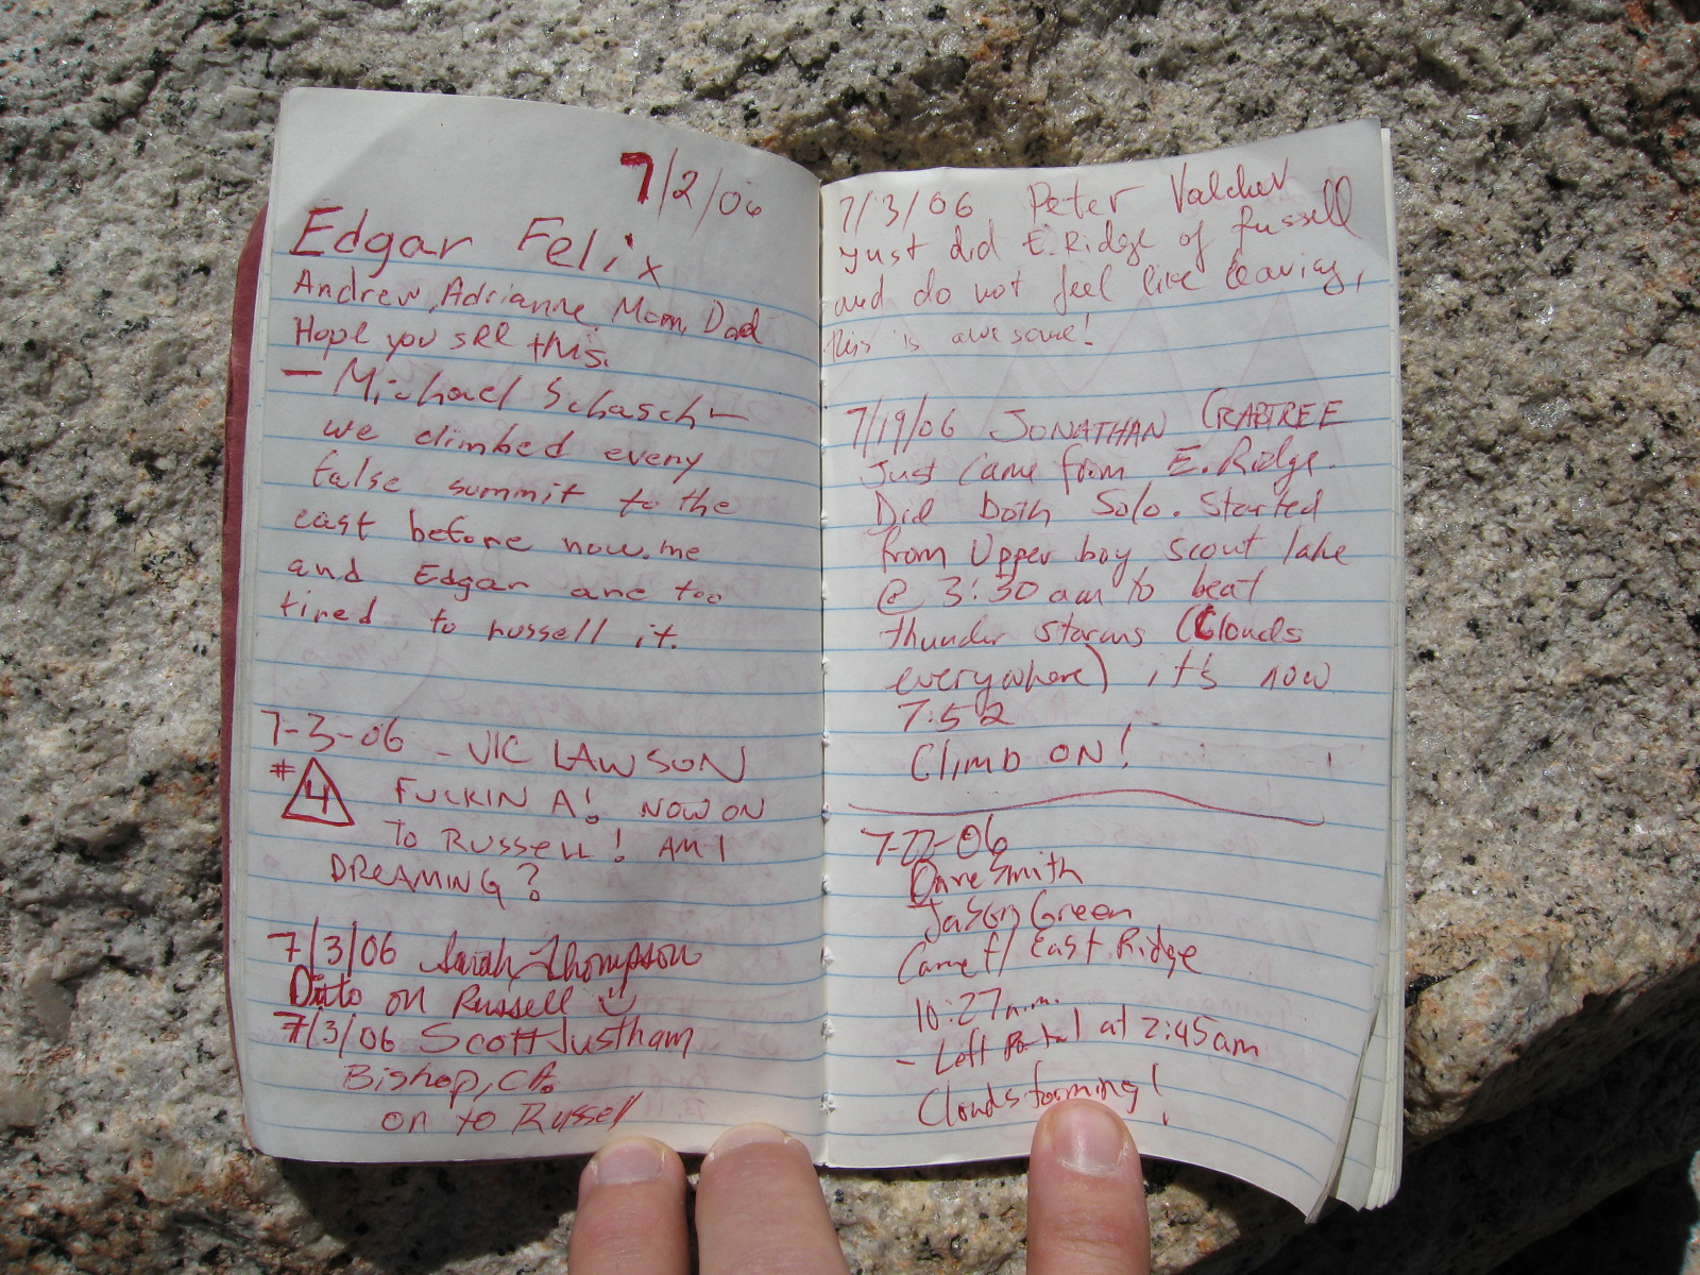 7/2/06
Edgar Felix
Andrew, Adrianne, Mom, Dad
Hope you see this.
— Michael Schasch —
we climbed every
false summit to the
east before now. me
and Edgar are too
tired to russell it.
7-3-06 - VIC LAWSON
#4 FUCKIN A! NOW ON
TO RUSSELL! AM I
DREAMING?
7/3/06 Sarah Thompson
Ditto on Russell
7/3/06 Scott Justham
Bishop, CA.
on to Russell
7/3/06 Peter Valchev
Just did E. Ridge of Russell
and do not feel like leaving,
this is awesome!
7/19/06 JONATHAN CRABTREE
Just Came from E. Ridge.
Did both Solo. Started
from Upper boy scout lake
@ 3:30 am to beat
thunder storms (Clouds
everywhere) it's now
7:52
Climb ON!
7-22-06
Dave Smith
Jason Green
Came f/ East Ridge
10:27 a.m.
- Left Portal at 2:45 am
Clouds forming!